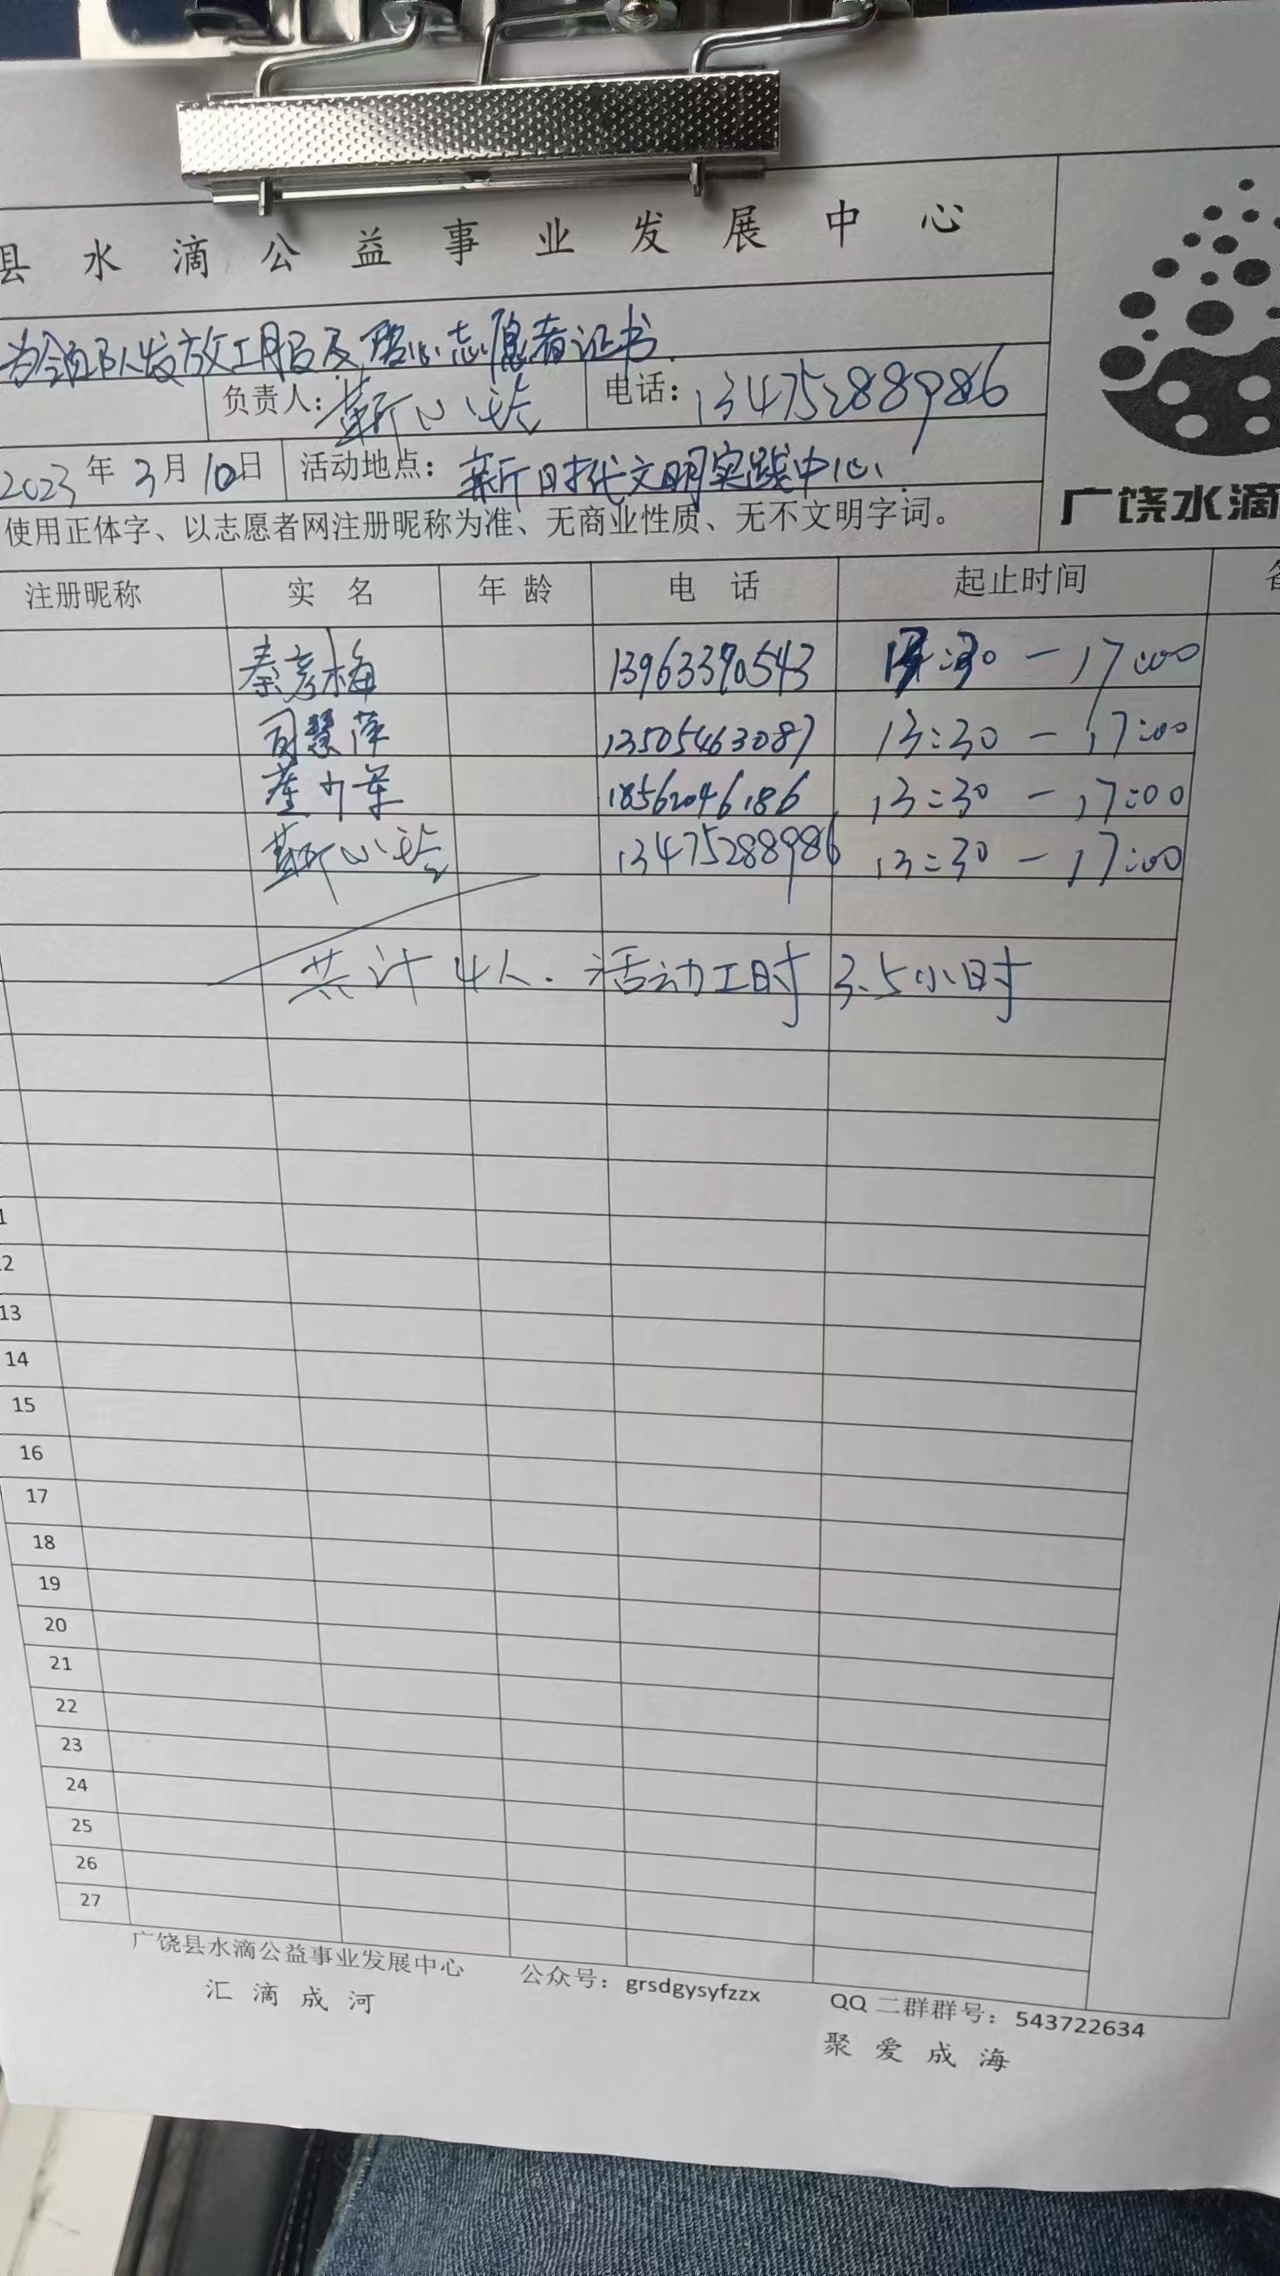 县水滴公益事业发展中心
为领队发放工服及爱心志愿者证书.
负责人: 靳小玲 电话: 13475288986
2023年3月10日 活动地点: 新时代文明实践中心.
广饶水滴
使用正体字、以志愿者网注册昵称为准、无商业性质、无不文明字词。
注册昵称 实名 年龄 电话 起止时间
秦彦梅 13963390543 13:30－17:00
司慧萍 13505463087 13:30－17:00
18562046186 13:30－17:00
靳小玲 13475288986 13:30－17:00
共计4人. 活动工时3.5小时
13
14
15
16
17
18
19
20
21
22
23
24
25
26
27
广饶县水滴公益事业发展中心 公众号：grsdgysyfzzx QQ二群群号：543722634
汇滴成河 聚爱成海